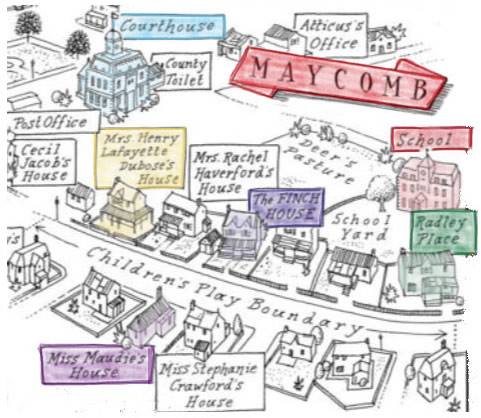 Courthouse
Atticus's
Office
County
Toilet
MAYCOMB
Post Office
Mrs. Henry
Lafayette
Dubose's
House
Cecil
Jacob's
House
Mrs. Rachel
Haverford's
House
Deer's
Pasture
School
The FINCH
HOUSE
School
Yard
Radley
Place
Children's Play Boundary
Miss Maudie's
House
Miss Stephanie
Crawford's
House